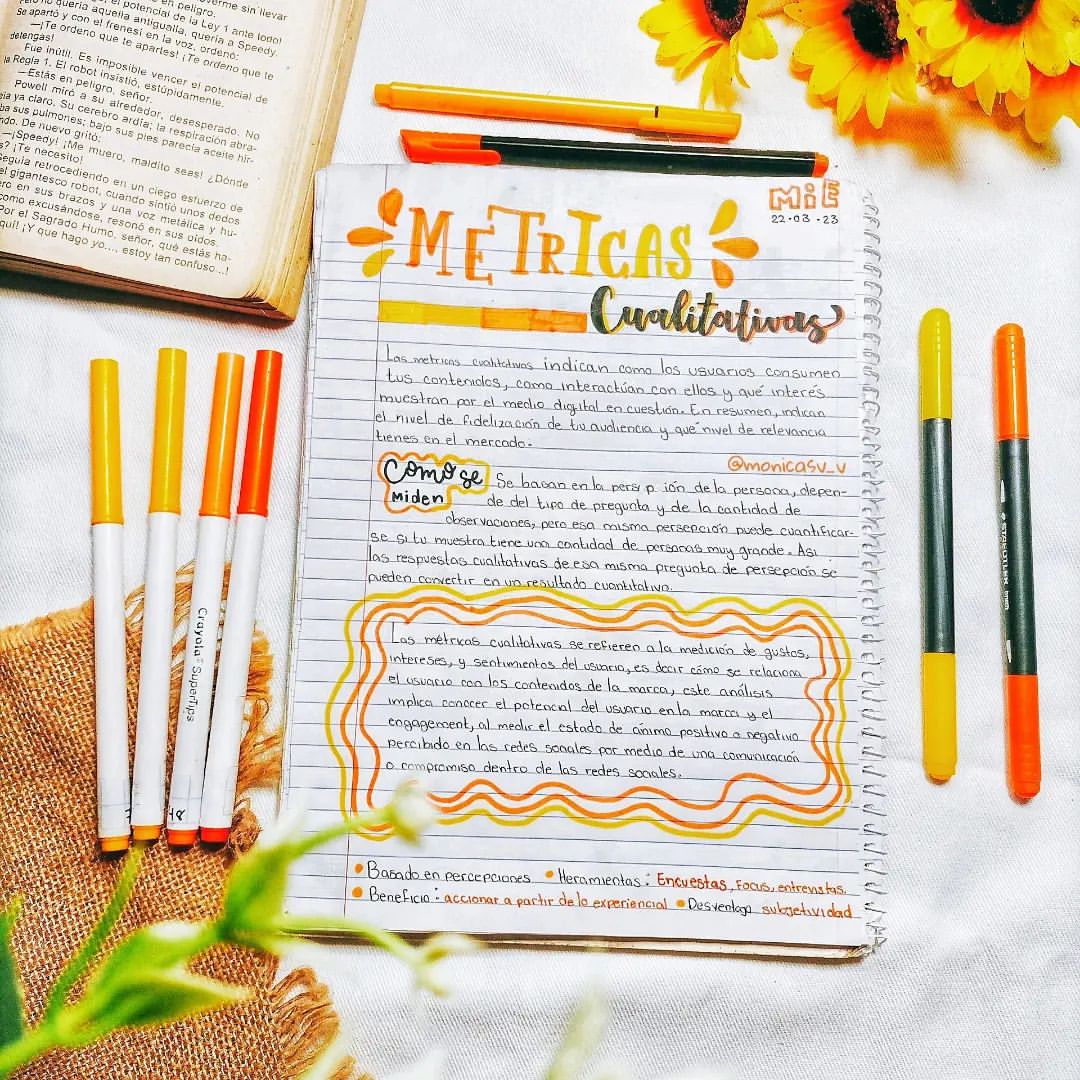 overme sin llevar
el potencial de la Ley 1 ante todo!
Se apartó y con el frenesí en la voz, ordenó:
—¡Te ordeno que te apartes! ¡Te ordeno que te
detengas!
Fue inútil. Es imposible vencer el potencial de
la Regla 1. El robot insistió, estúpidamente.
—Estás en peligro, señor.
Powell miró a su alrededor, desesperado. No
eía ya claro. Su cerebro ardía; la respiración abra-
ba sus pulmones; bajo sus pies parecía aceite hir-
ndo. De nuevo gritó:
—¡Speedy! ¡Me muero, maldito seas! ¿Dónde
s? ¡Te necesito!
Seguía retrocediendo en un ciego esfuerzo de
el gigantesco robot, cuando sintió unos dedos
ero en sus brazos y una voz metálica y hu-
como excusándose, resonó en sus oídos.
Por el Sagrado Humo, señor, qué estás ha-
quí! ¡Y que hago yo..., estoy tan confuso...!
MiE
22·03·23
METRICAS
Cualitativas
Las metricas cualitativas indican como los usuarios consumen
tus contenidos, como interactúan con ellos y qué interés
muestran por el medio digital en cuestión. En resumen, indican
el nivel de fidelización de tu audiencia y qué nivel de relevancia
tienes en el mercado.
@monicasv_v
Como se
miden
Se basan en la persp ión de la persona, depen-
de del tipo de pregunta y de la cantidad de
observaciones, pero esa misma persepción puede cuantificar-
se si tu muestra tiene una cantidad de personas muy grande. Asi
las respuestas cualitativas de esa misma pregunta de persepción se
pueden convertir en un resultado cuantitativo.
Las métricas cualitativas se refieren a la medición de gustos,
intereses, y sentimientos del usuario, es decir cómo se relaciona
el usuario con los contenidos de la marca, este análisis
implica conocer el potencial del usuario en la marca y el
engagement, al medir el estado de ánimo positivo o negativo
percibido en las redes sociales por medio de una comunicación
o compromiso dentro de las redes sociales.
• Basado en percepciones • Heramientas: Encuestas, Focus, entrevistas.
• Beneficio: accionar a partir de lo experiencial • Desventaja subjetividad
Crayola SuperTips
STAEDTLER